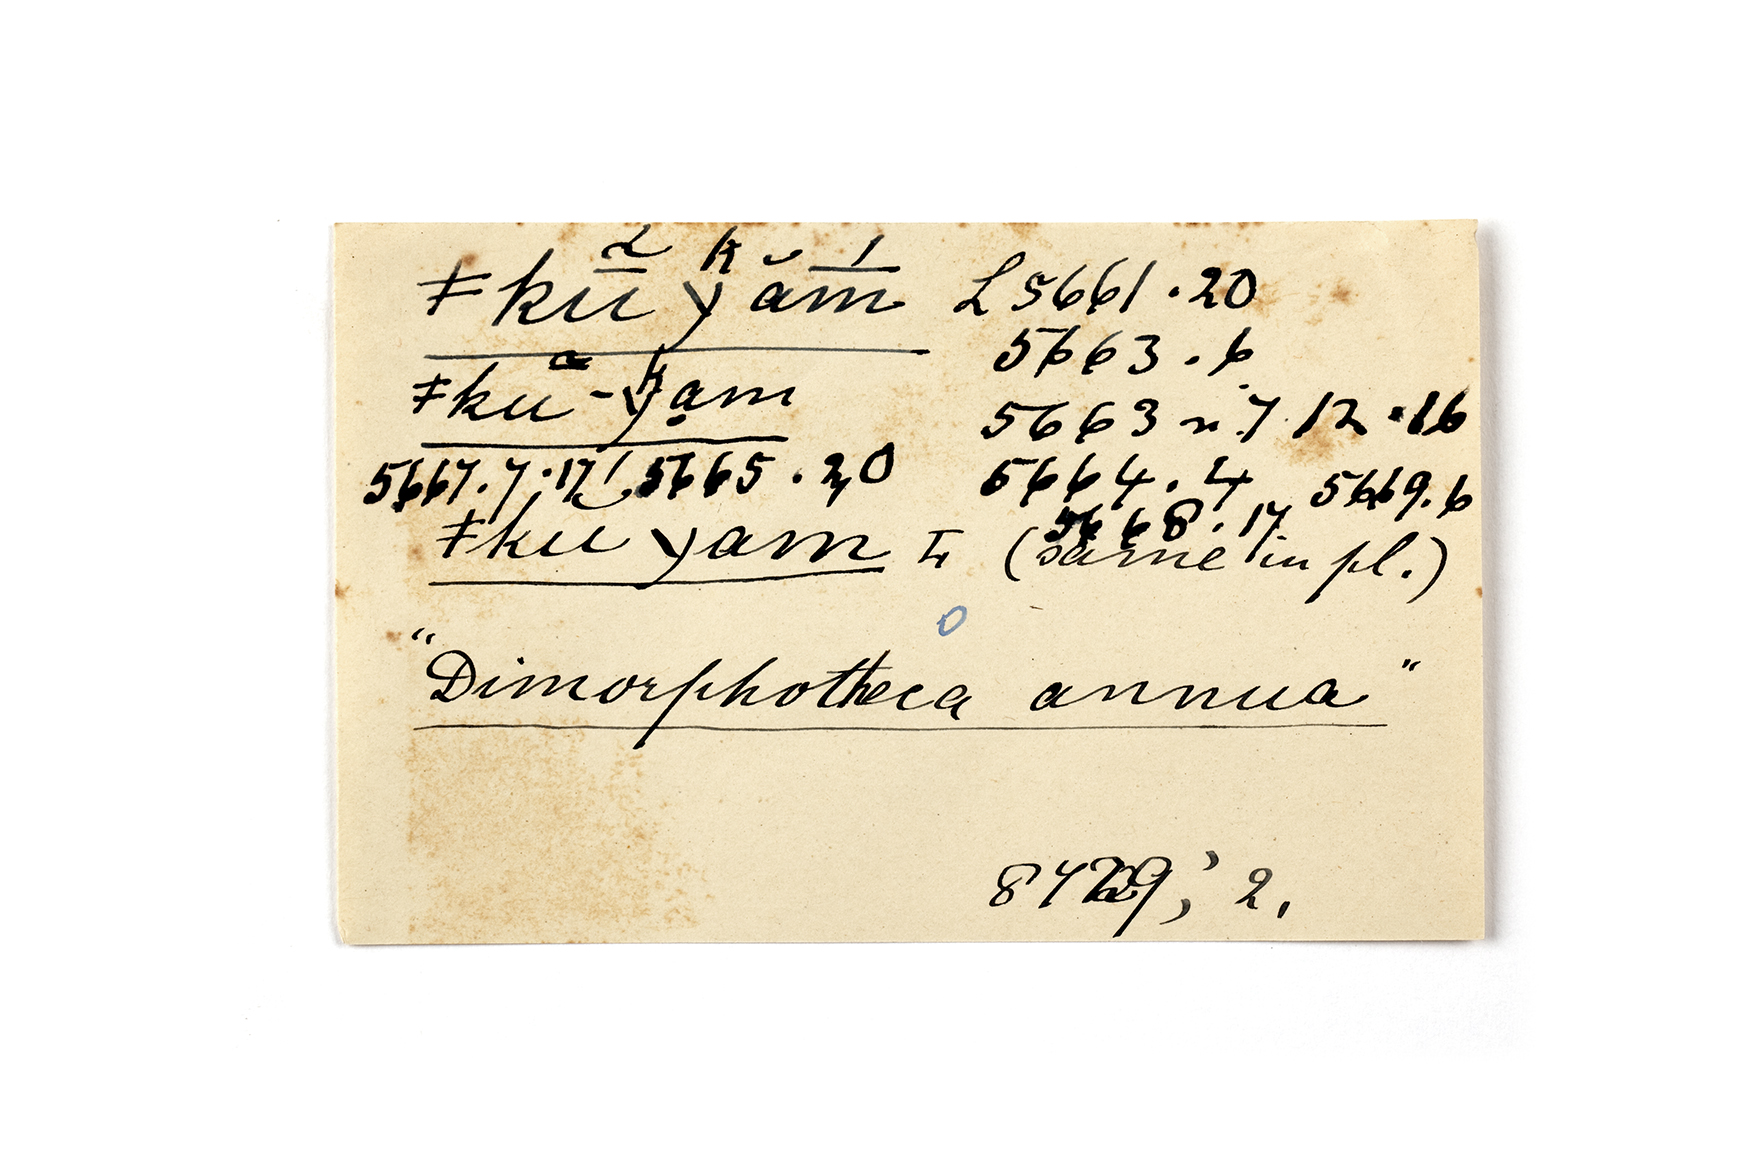 ǂkū yăm L 5661.20
5663.6
ǂku-yam 5663 n.7.12.16
5667.7.17 5665.20 5664.4 5669.6
5668.17
ǂkŭ yam L (same in pl.)
"Dimorphotheca annua"
2.